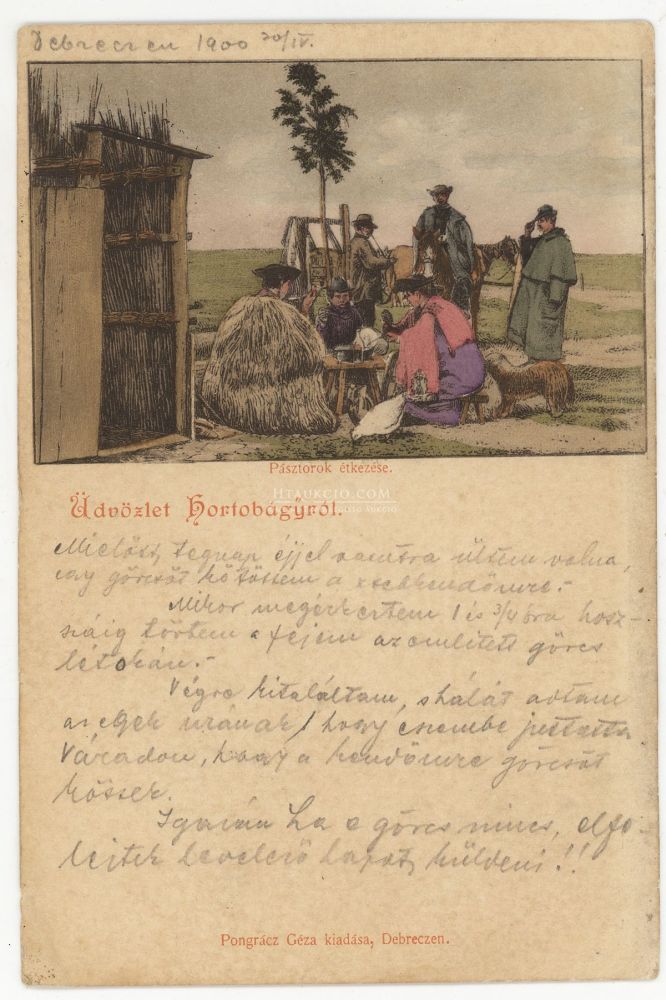 Debreczen 1900 20/IV.
Pásztorok étkezése.
HTAUKCIO.COM
Üdvözlet Hortobágyról.
Mielőtt tegnap éjjel vonatra ültem volna,
egy görcsöt kötöttem a zsebkendőmre.-
Mikor megérkeztem 1 és 3/4 óra hosz-
száig törtem a fejem az említett görcs
létokán.-
Végre kitaláltam, s hálát adtam
az egek urának, hogy eszembe juttatta
Váradon, hogy a kendőmre görcsöt
kössek.
Igazán ha e görcs nincs, elfe-
lejtek levelező lapot küldeni!!
Pongrácz Géza kiadása, Debreczen.